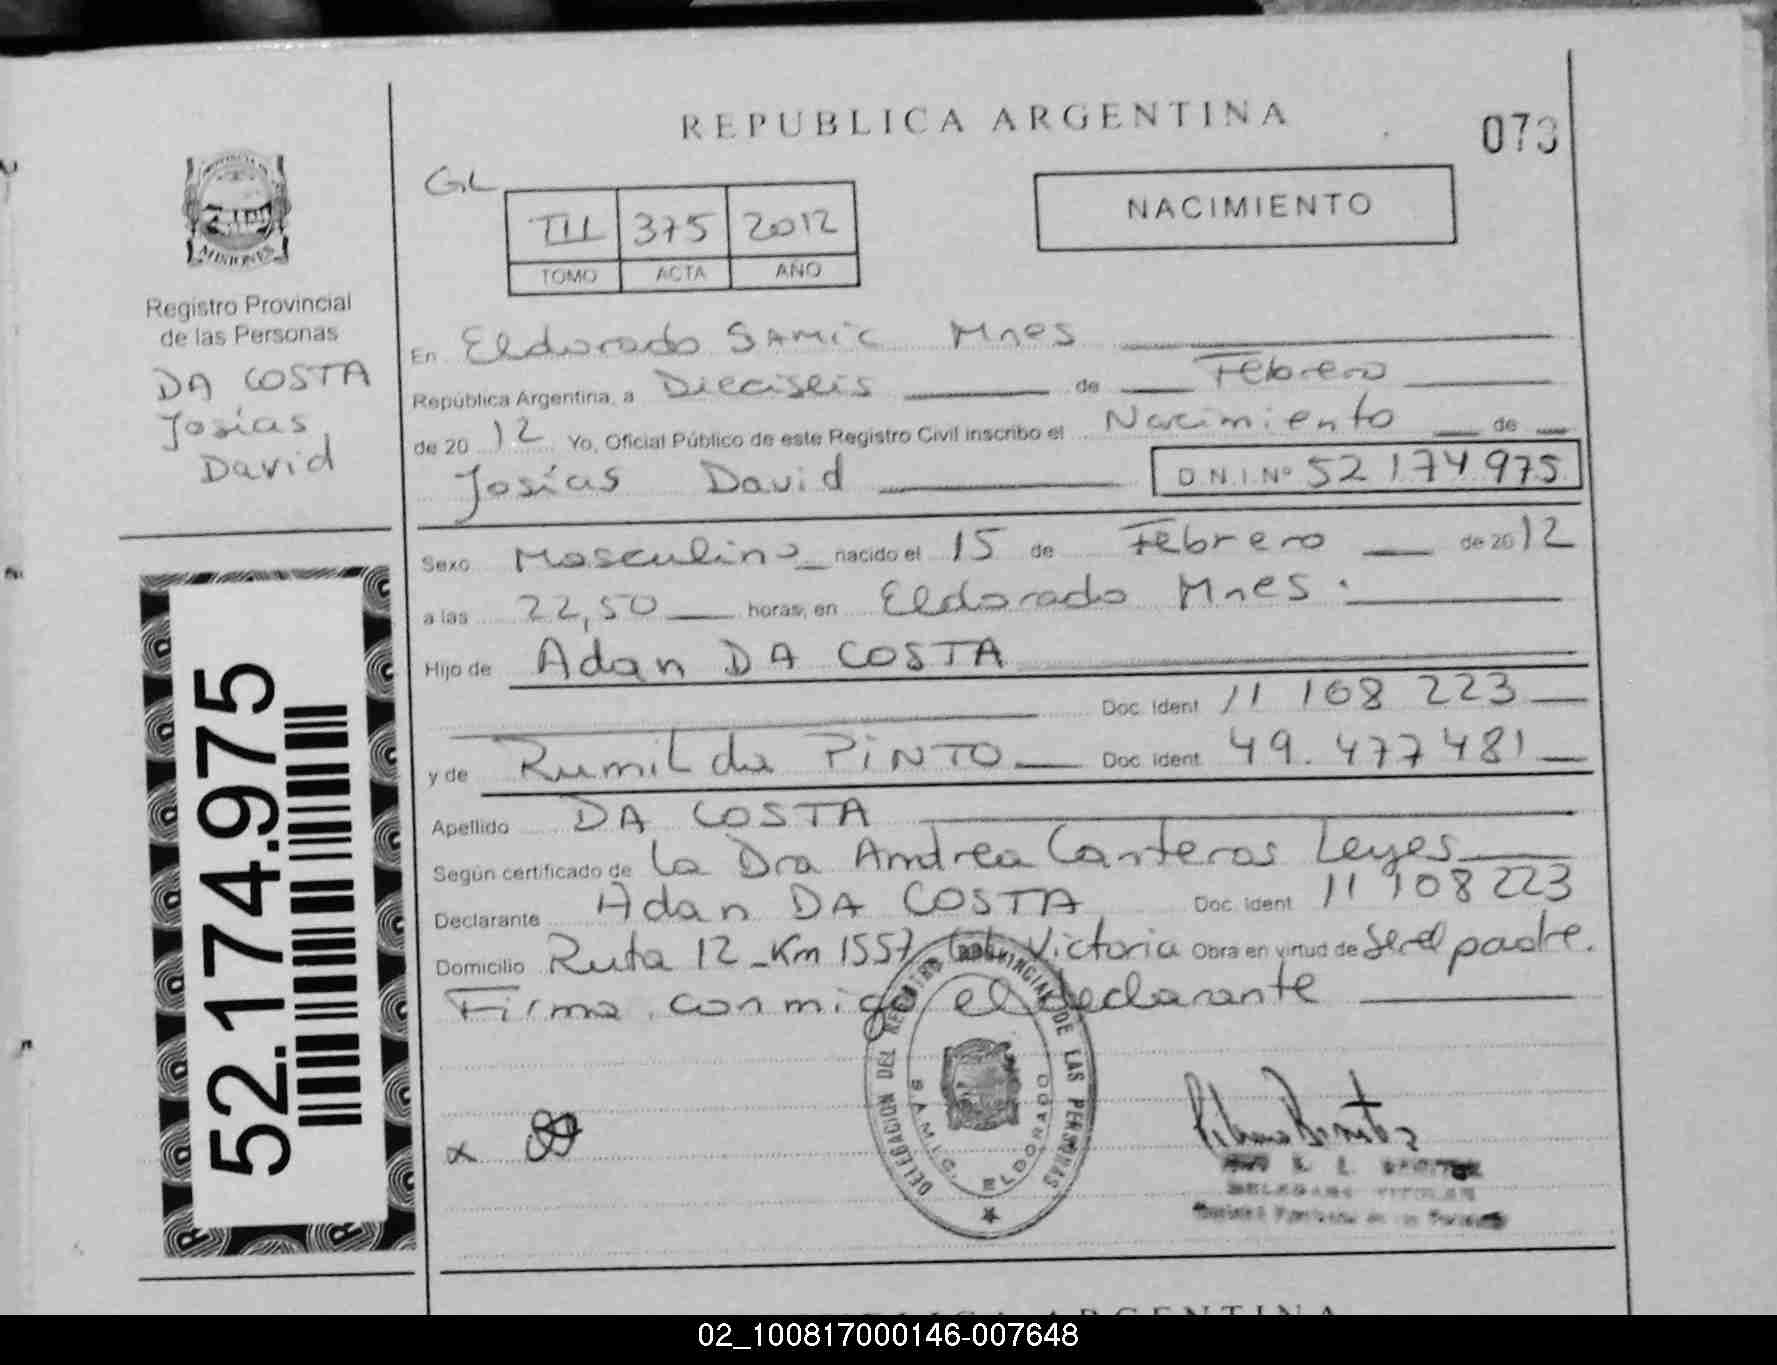 REPUBLICA ARGENTINA
073
PROVINCIA DE
MISIONES
Registro Provincial
de las Personas
DA COSTA
Josías
David
52.174.975
GL
TIII 375 2012
TOMO ACTA AÑO
NACIMIENTO
En Eldorado SAMIC Mnes
República Argentina, a Dieciseis de Febrero
de 20 12 Yo, Oficial Público de este Registro Civil inscribo el Nacimiento de
Josías David D.N.I.Nº 52 174 975
Sexo Masculino nacido el 15 de Febrero de 20 12
a las 22,50 horas, en Eldorado Mnes.
Hijo de Adan DA COSTA
Doc. Ident 11 108 223
y de Rumilda PINTO Doc. Ident 49.477481
Apellido DA COSTA
Según certificado de la Dra Andrea Canteros Leyes
Declarante Adan DA COSTA Doc. Ident 11 108 223
Domicilio Ruta 12 - Km 1557 Victoria Obra en virtud de Ser el padre.
Firma conmigo el declarante
x
DELEGACION DEL REGISTRO PROVINCIAL DE LAS PERSONAS
S.A.M.I.C. ELDORADO
02_100817000146-007648